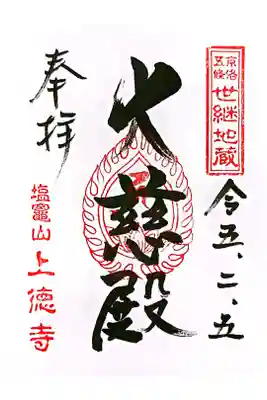 京洛五條
世継地蔵
令五、二、五
大慈殿
奉拝
塩竈山
上徳寺